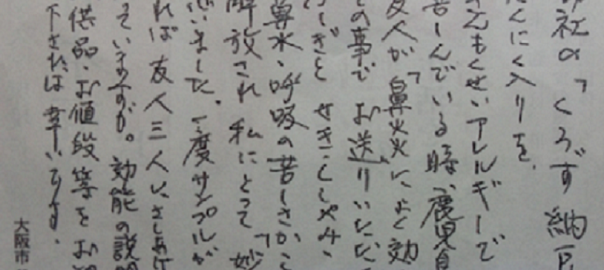 御社の「くろず納豆
にんにく入りを
きんもくせいアレルギーで
苦しんでいる時、鹿児島
友人が「鼻炎によく効
との事でお送りいただ
せきこしゃみ、
鼻水・呼吸の苦しさか
解放され私にとって「妙
思いました。一度サンプルが
れば友人三人にさしあげ
っているのですが。効能の説明
供品・お値段等をお知
下されば幸いです。
大阪市